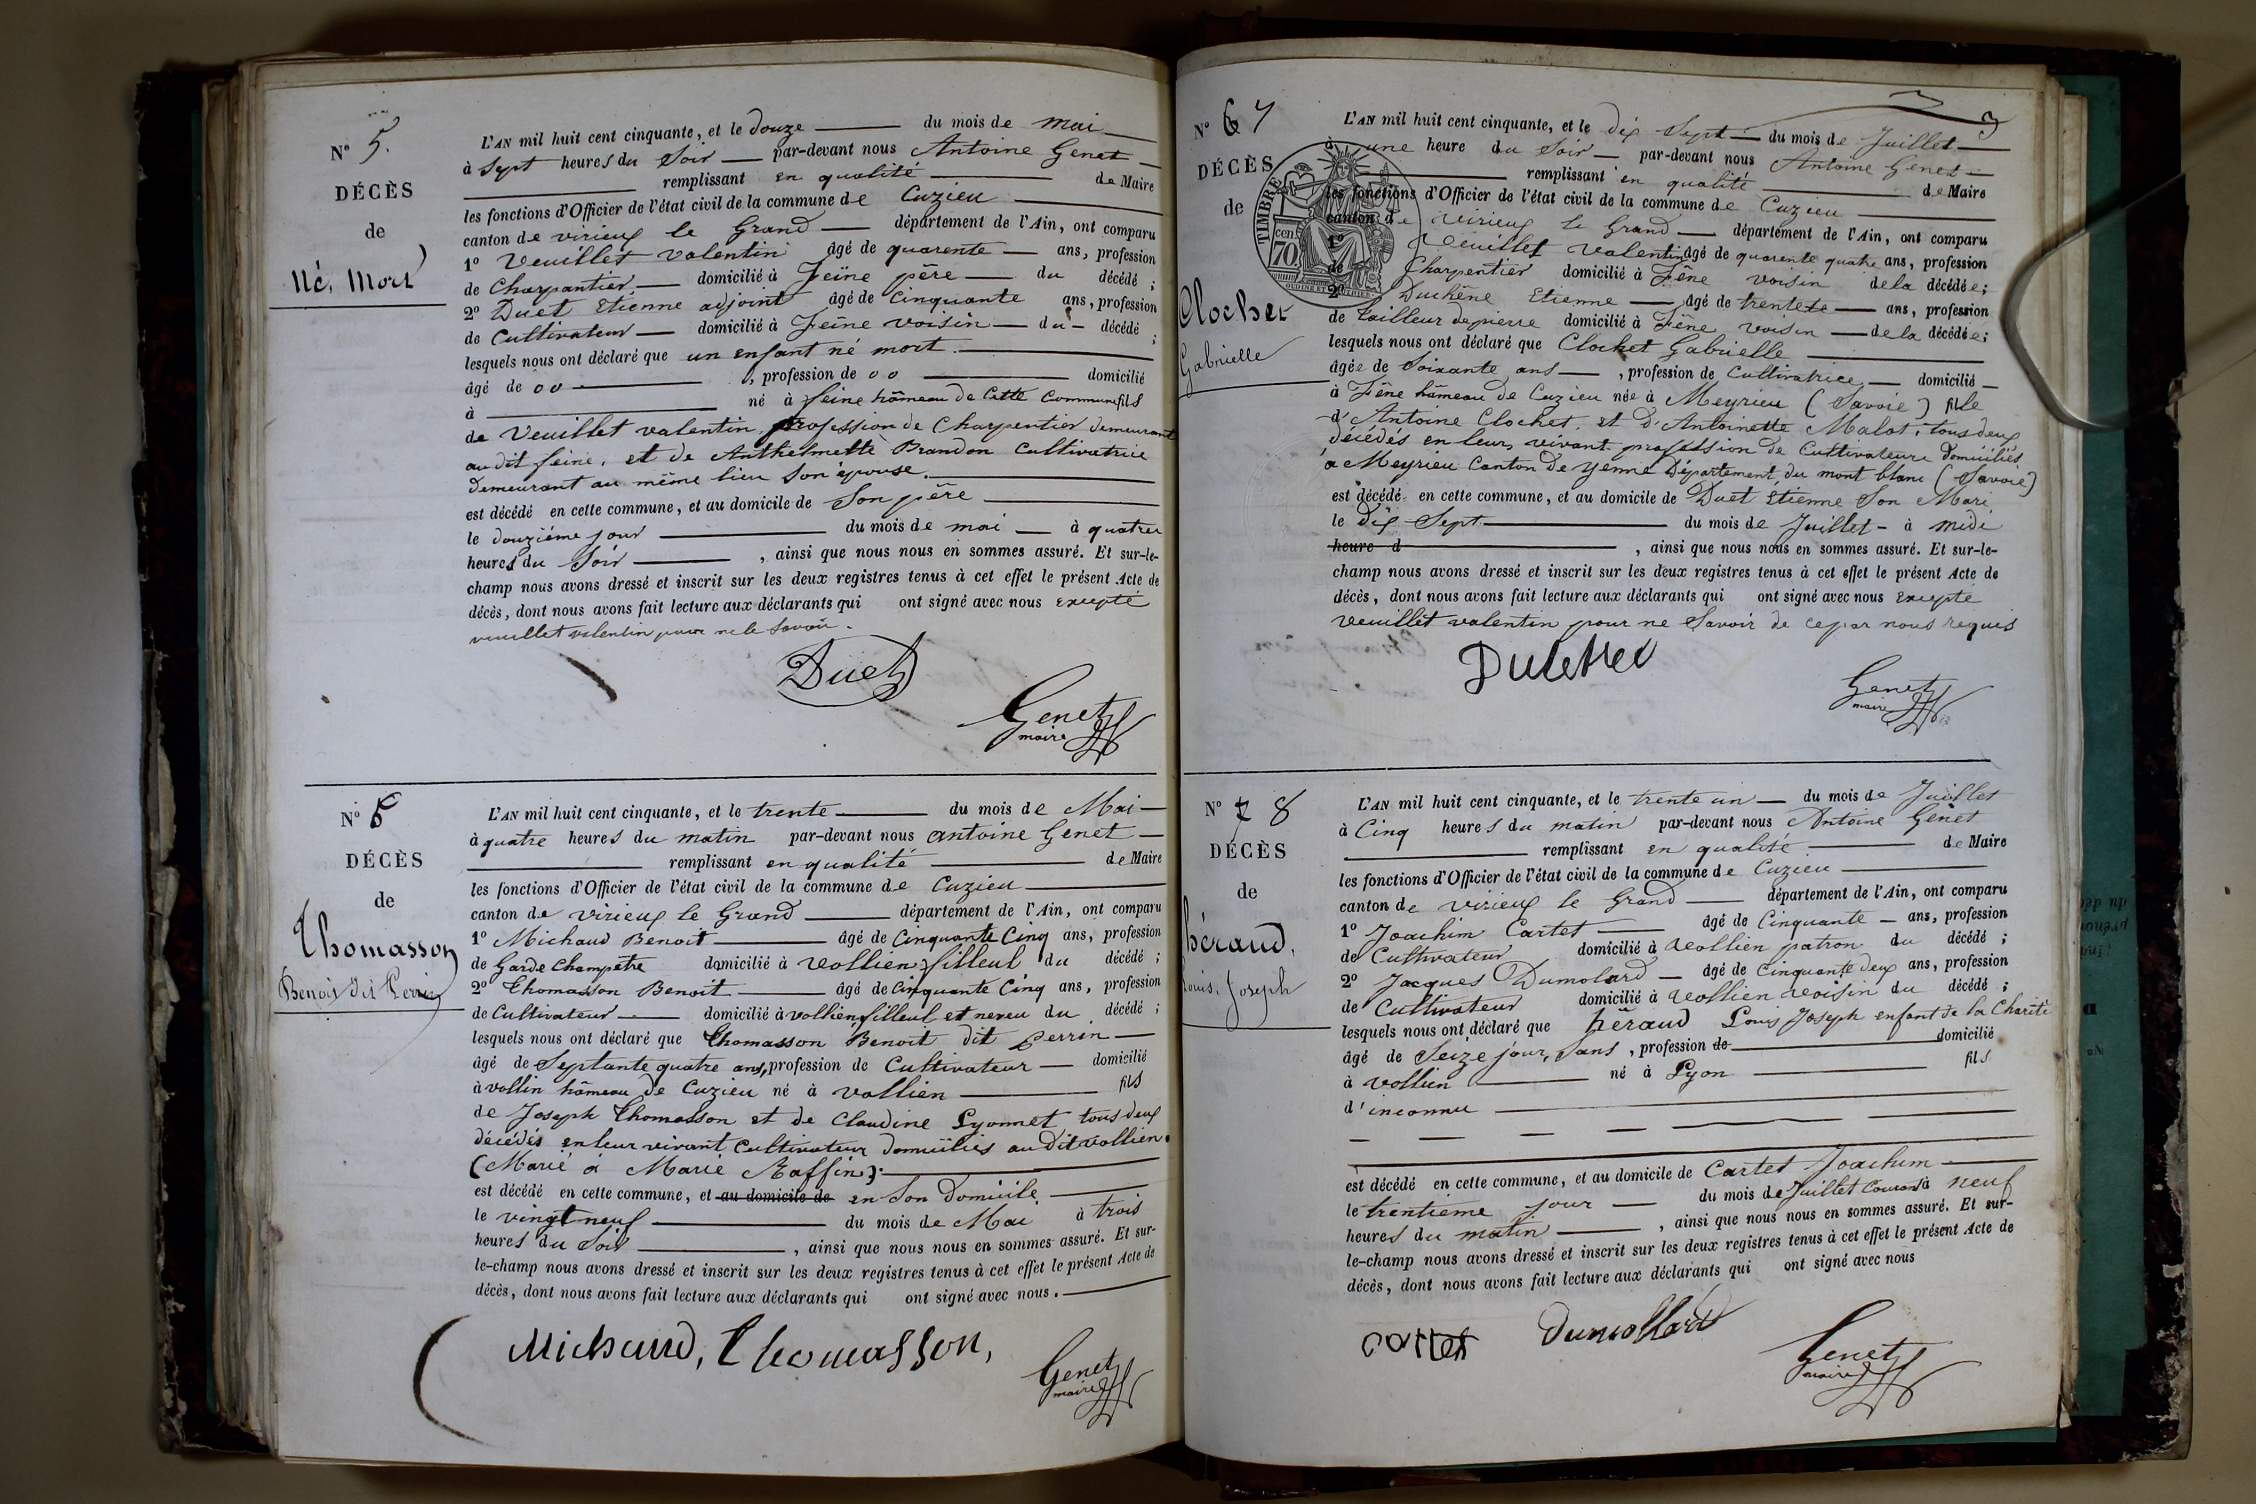 N° 5.
DÉCÈS
de
Né, Mort
L'AN mil huit cent cinquante, et le douze du mois de mai
à sept heures du Soir par-devant nous Antoine Genet
remplissant en qualité de Maire
les fonctions d'Officier de l'état civil de la commune de Cuzieu
canton de virieux le Grand département de l'Ain, ont comparu
1° Veuillet valentin âgé de quarente ans, profession
de Charpantier domicilié à Feine père du décédé ;
2° Duet Etienne adjoint âgé de Cinquante ans, profession
de Cultivateur domicilié à Feine voisin du décédé ;
lesquels nous ont déclaré que un enfant né mort.
âgé de 00 , profession de 00 domicilié
à né à feine hâmeau de Cette Commune fils
de Veuillet valentin, profession de Charpentier demeurant
au dit feine, et de Anthelmette Brandon Cultivatrice
demeurant au même lieu Son épouse.
est décédé en cette commune, et au domicile de Son père
le douzième jour du mois de mai à quatre
heures du Soir , ainsi que nous nous en sommes assuré. Et sur-le-
champ nous avons dressé et inscrit sur les deux registres tenus à cet effet le présent Acte de
décès, dont nous avons fait lecture aux déclarants qui ont signé avec nous excepté
veuillet valentin pour ne le Savoir.
Duet
Genet
maire
N° 6
DÉCÈS
de
Thomasson
Benoit dit Perrin
L'AN mil huit cent cinquante, et le trente du mois de Mai
à quatre heures du matin par-devant nous antoine Genet
remplissant en qualité de Maire
les fonctions d'Officier de l'état civil de la commune de Cuzieu
canton de virieux le Grand département de l'Ain, ont comparu
1° Michaud Benoit âgé de Cinquante Cinq ans, profession
de Garde Champêtre domicilié à vollien filleul du décédé ;
2° Thomasson Benoit âgé de Cinquante Cinq ans, profession
de Cultivateur domicilié à vollien filleul et neveu du décédé ;
lesquels nous ont déclaré que Thomasson Benoit dit perrin
âgé de Septante quatre ans, profession de Cultivateur domicilié
à vollin hâmeau de Cuzieu né à vollien fils
de Joseph Thomasson et de Claudine Lyonnet tous deux
décédés en leur vivant Cultivateur domiciliés au dit vollien.
(Marié à Marie Raffin).
est décédé en cette commune, et au domicile de en Son domicile
le vingt neuf du mois de Mai à trois
heures du Soir , ainsi que nous nous en sommes assuré. Et sur-
le-champ nous avons dressé et inscrit sur les deux registres tenus à cet effet le présent Acte de
décès, dont nous avons fait lecture aux déclarants qui ont signé avec nous.
Michaud, Thomasson,
Genet
maire
3
N° 6 7
DÉCÈS
de
Clochet
Gabrielle
TIMBRE
cen. 70
L'AN mil huit cent cinquante, et le dix Sept du mois de Juillet
à une heure du Soir par-devant nous Antoine Genet
remplissant en qualité de Maire
les fonctions d'Officier de l'état civil de la commune de Cuzieu
canton de virieux le Grand département de l'Ain, ont comparu
1° Veuillet valentin âgé de quarente quatre ans, profession
de Charpentier domicilié à Fêne voisin de la décédée ;
2° Duchêne Etienne âgé de trente ans, profession
de tailleur de pierre domicilié à Fêne voisin de la décédée ;
lesquels nous ont déclaré que Clochet Gabrielle
âgée de Soixante ans , profession de Cultivatrice domicilié
à Fêne hâmeau de Cuzieu née à Meyrieu (Savoie) fille
d'Antoine Clochet et D'Antoinette Malot, tous deux
décédés en leur vivant profession de Cultivateurs domiciliés
à Meyrieu Canton de Yenne Département du mont blanc (Savoie)
est décédé en cette commune, et au domicile de Duet Etienne Son Mari
le Dix Sept du mois de Juillet à midi
heure d , ainsi que nous nous en sommes assuré. Et sur-le-
champ nous avons dressé et inscrit sur les deux registres tenus à cet effet le présent Acte de
décès, dont nous avons fait lecture aux déclarants qui ont signé avec nous excepté
veuillet valentin pour ne Savoir de ce par nous requis
Genet
maire
N° 7 8
DÉCÈS
de
héraud,
Louis, Joseph
L'AN mil huit cent cinquante, et le trente un du mois de Juillet
à Cinq heures du matin par-devant nous Antoine Genet
remplissant en qualité de Maire
les fonctions d'Officier de l'état civil de la commune de Cuzieu
canton de virieux le Grand département de l'Ain, ont comparu
1° Joachim Cartet âgé de Cinquante ans, profession
de Cultivateur domicilié à vollien patron du décédé ;
2° Jacques Dumolard âgé de Cinquante deux ans, profession
de Cultivateur domicilié à vollien voisin du décédé ;
lesquels nous ont déclaré que héraud Louis Joseph enfant de la Charité
âgé de Seize jour, Sans , profession de domicilié
à vollien né à Lyon fils
d'inconnu
est décédé en cette commune, et au domicile de Cartet Joachim
le trentième jour du mois de Juillet Courant à neuf
heures du matin , ainsi que nous nous en sommes assuré. Et sur-
le-champ nous avons dressé et inscrit sur les deux registres tenus à cet effet le présent Acte de
décès, dont nous avons fait lecture aux déclarants qui ont signé avec nous
cartet dumollard
Genet
maire